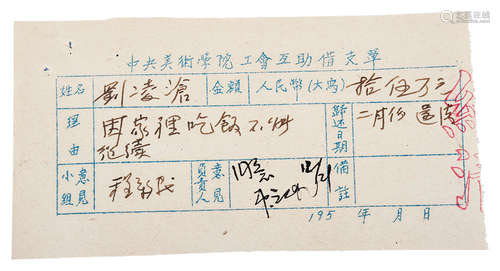 中央美術學院工會互助借支單
姓名 劉凌滄 金額 人民幣(大寫) 拾伍万元
理由 因家裡吃飯不能 歸还日期 二月份還清
継續
小組意見 負責人意見 同意 12/21 備註
195 年 月 日